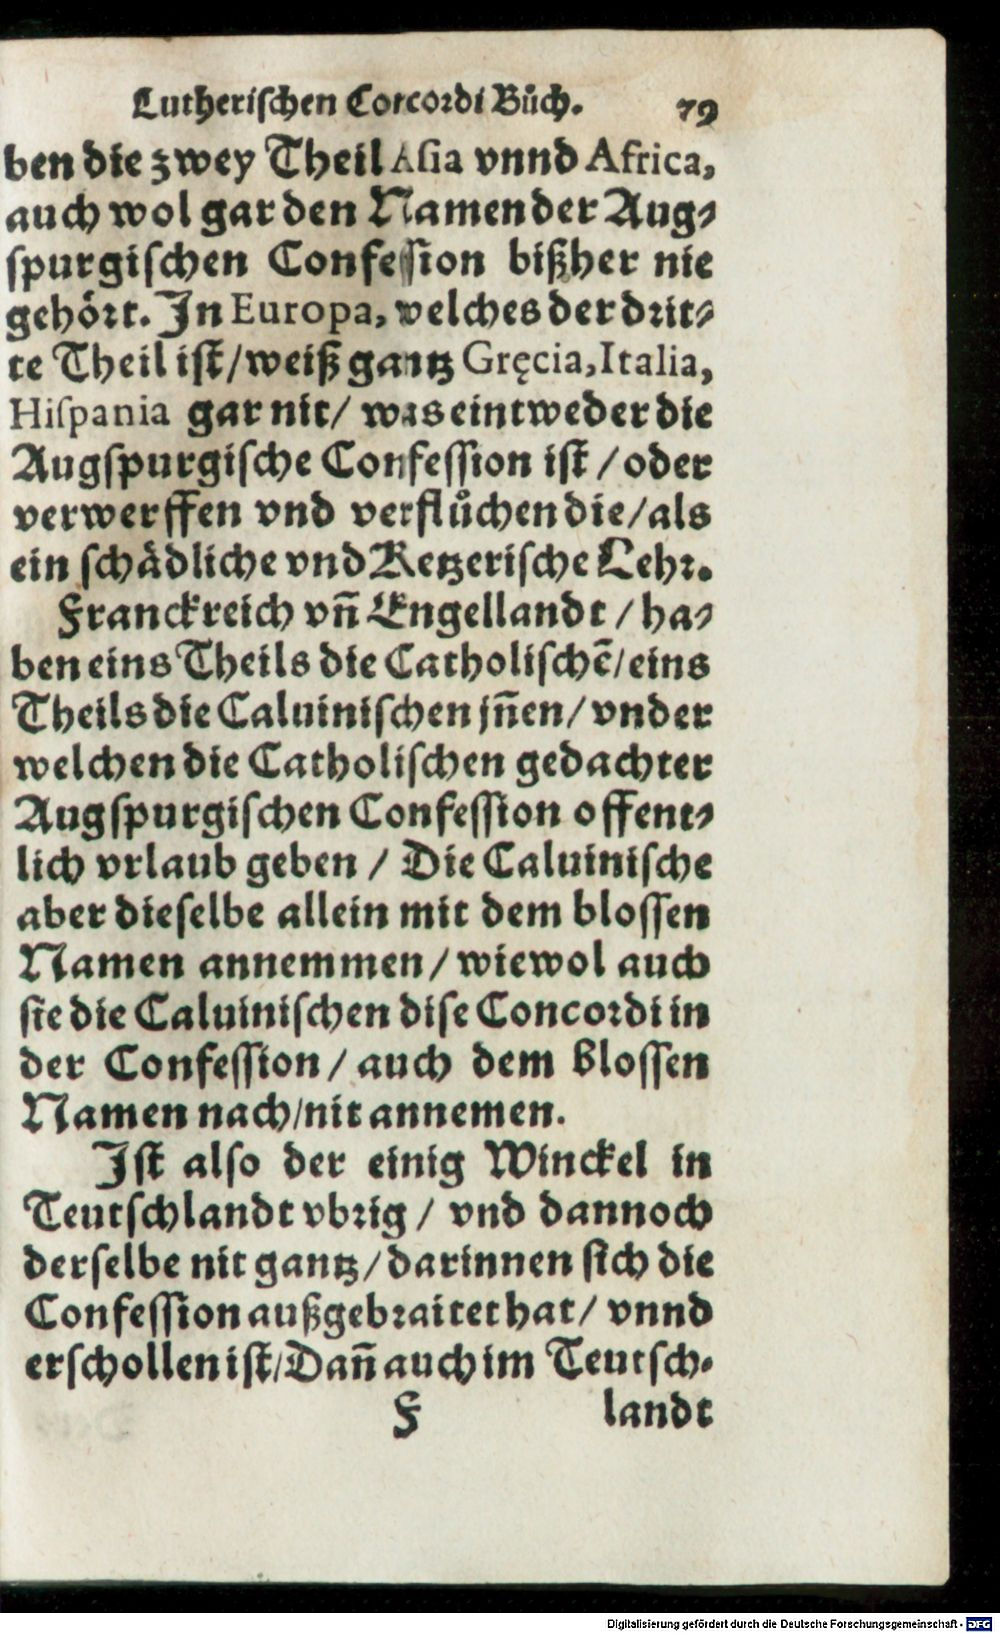 Lutherischen Corcordi Bůch. 79
ben die zwey Theil Asia vnnd Africa,
auch wol gar den Namen der Aug⸗
spurgischen Confession bißher nie
gehört. In Europa, welches der drit⸗
te Theil ist/ weiß gantz Gręcia, Italia,
Hispania gar nit/ was eintweder die
Augspurgische Confession ist / oder
verwerffen vnd verflůchen die/ als
ein schädliche vnd Ketzerische Lehr.
Franckreich vñ Engellandt / ha⸗
ben eins Theils die Catholischē/ eins
Theils die Caluinischen jñen/ vnder
welchen die Catholischen gedachter
Augspurgischen Confession offent⸗
lich vrlaub geben / Die Caluinische
aber dieselbe allein mit dem blossen
Namen annemmen/ wiewol auch
sie die Caluinischen dise Concordi in
der Confession / auch dem blossen
Namen nach/ nit annemen.
Ist also der einig Winckel in
Teutschlandt vbrig / vnd dannoch
derselbe nit gantz/ darinnen sich die
Confession außgebraitet hat/ vnnd
erschollen ist/ Dañ auch im Teutsch⸗
F landt
Digitalisierung gefördert durch die Deutsche Forschungsgemeinschaft - DFG